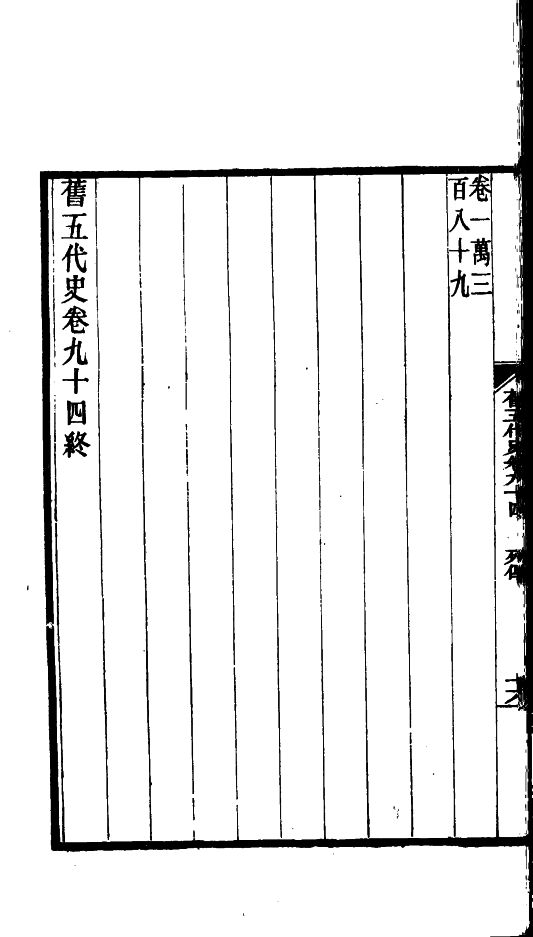 卷一萬三
百八十九
舊五代史卷九十四終
舊五代史卷九十四 列傳